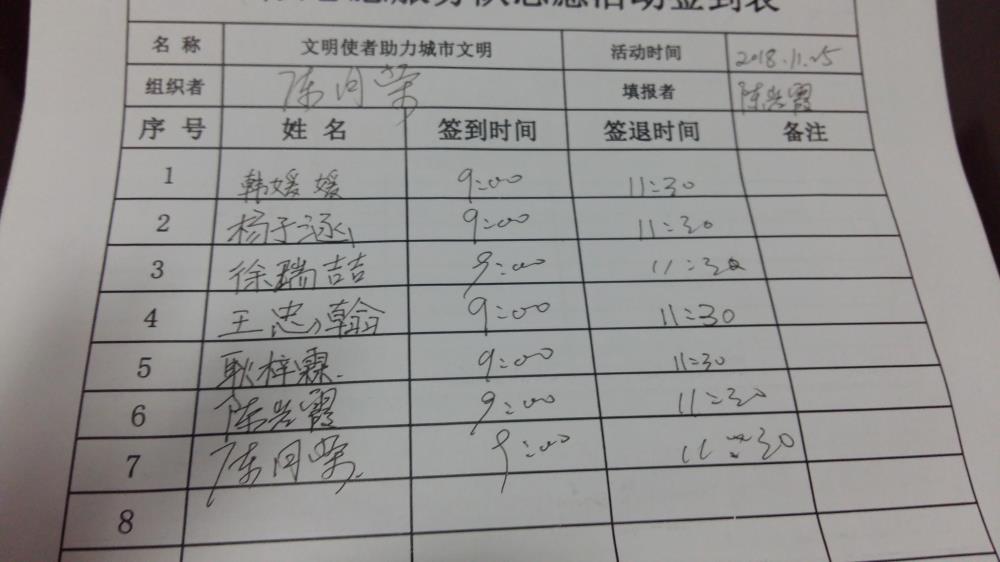 服务队志愿活动签到表
名 称 文明使者助力城市文明 活动时间 2018.11.25
组织者 陈同荣 填报者 陈兴霞
序 号 姓 名 签到时间 签退时间 备注
1 韩媛媛 9:00 11:30
2 杨子涵 9:00 11:30
3 徐瑞喆 9:00 11:30
4 王忠翰 9:00 11:30
5 耿梓霖 9:00 11:30
6 陈兴霞 9:00 11:30
7 陈同荣 9:00 11:30
8